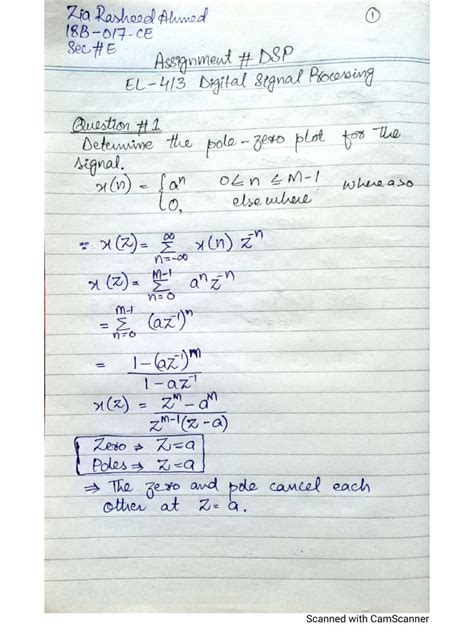 Zia Rasheed Ahmed
①
18B-017-CE
Sec # E
Assignment # DSP
EL-413 Digital Signal Processing
Question #1
Determine the pole-zero plot for the
signal.
x(n) = { aⁿ 0≤n≤M-1 where a>o
0, elsewhere
∵ x(z) = ∞Σn=-∞ x(n) z⁻ⁿ
x(z) = M-1Σn=0 aⁿz⁻ⁿ
= M-1Σn=0 (az⁻¹)ⁿ
= 1-(az⁻¹)ᵐ / 1-az⁻¹
x(z) = zᵐ-aᵐ / zᵐ⁻¹(z-a)
Zero ⇒ Z=a
Poles ⇒ Z=a
⇒ The zero and pole cancel each
other at Z=a.
Scanned with CamScanner